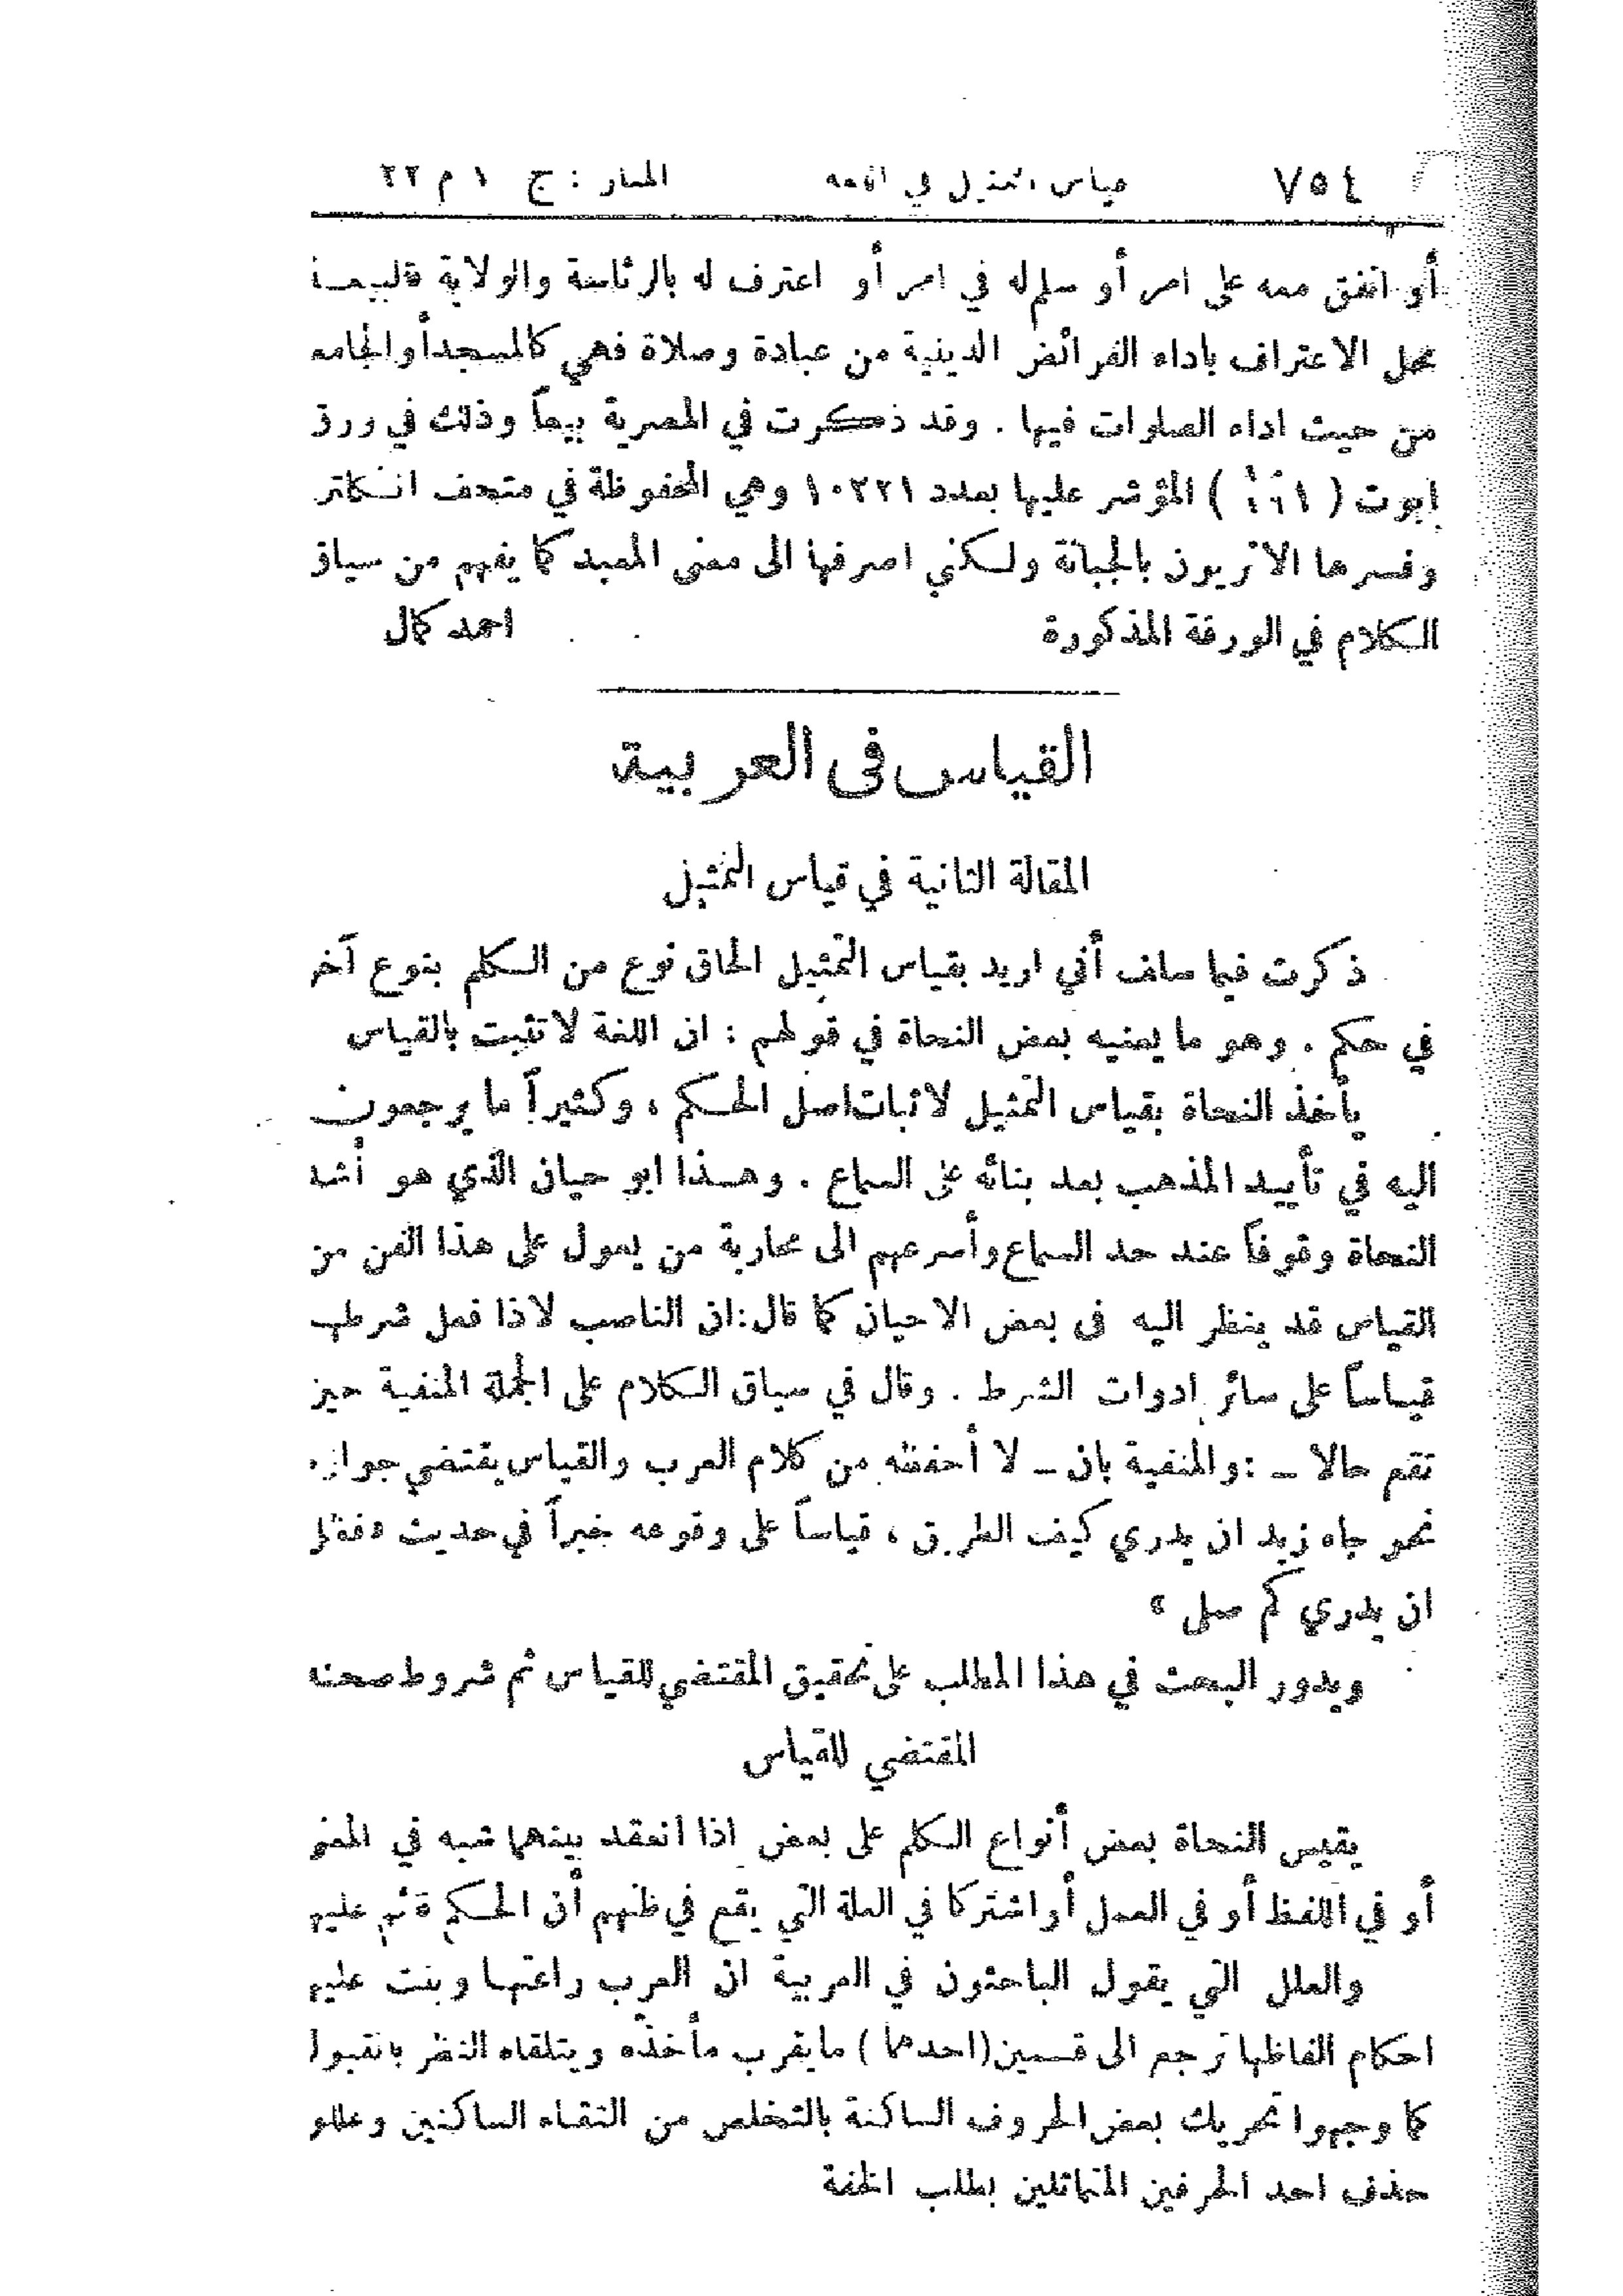 ٧٥٤ قياس التمثيل في اللغة المنار : ج ١ م ٢٢
أو اتفق معه على امر أو سلم له في امر أو اعترف له بالرئاسة والولاية فالبيعة
محل الاعتراف باداء الفرائض الدينية من عبادة وصلاة فهي كالمسجد أو الجامع
من حيث اداء الصلوات فيها . وقد ذكرت في المصرية بيعاً وذلك في ورق
ابوت ( ) المؤشر عليها بعدد ١٠٢٢١ وهي المحفوظة في متحف انكلتر
وفسرها الاثريون بالجبانة ولكني اصرفها الى معنى المعبد كما يفهم من سياق
الكلام في الورقة المذكورة احمد كمال
القياس في العربية
المقالة الثانية في قياس التمثيل
ذكرت فيما سلف أني اريد بقياس التمثيل الحاق نوع من الكلم بنوع آخر
في حكم . وهو ما يعنيه بعض النحاة في قولهم : ان اللغة لا تثبت بالقياس
يأخذ النحاة بقياس التمثيل لاثبات اصل الحكم ، وكثيراً ما يرجعون
اليه في تأييد المذهب بعد بنائه على السماع . وهذا ابو حيان الذي هو أشد
النحاة وقوفاً عند حد السماع وأسرعهم الى محاربة من يعول على هذا الفن من
القياس قد ينظر اليه في بعض الاحيان كما قال : ان الناصب لاذا فعل شرطها
قياساً على سائر ادوات الشرط . وقال في سياق الكلام على الجملة المنفية حين
تقع حالا – : والمنفية بان – لا أحفظه من كلام العرب والقياس يقتضي جوازه
نحو جاء زيد ان يدري كيف الطريق ، قياساً على وقوعه خبراً في حديث « فظل
ان يدري كم صلى »
ويدور البحث في هذا المطلب على تحقيق المقتضي للقياس ثم شروط صحته
المقتضي للقياس
يقيس النحاة بعض أنواع الكلم على بعض اذا انعقد بينهما شبه في المعنى
أو في اللفظ أو في العمل أو اشتركا في العلة التي يقع في ظنهم أن الحكم قائم عليها
والعلل التي يقول الباحثون في العربية ان العرب راعتها وبنت عليها
احكام الفاظها ترجع الى قسمين (احدهما) ما يقرب مأخذه ويتلقاه النظر بالقبول
كما وجهوا تحريك بعض الحروف الساكنة بالتخلص من التقاء الساكنين وعللوا
حذف احد الحرفين المتماثلين بطلب الخفة